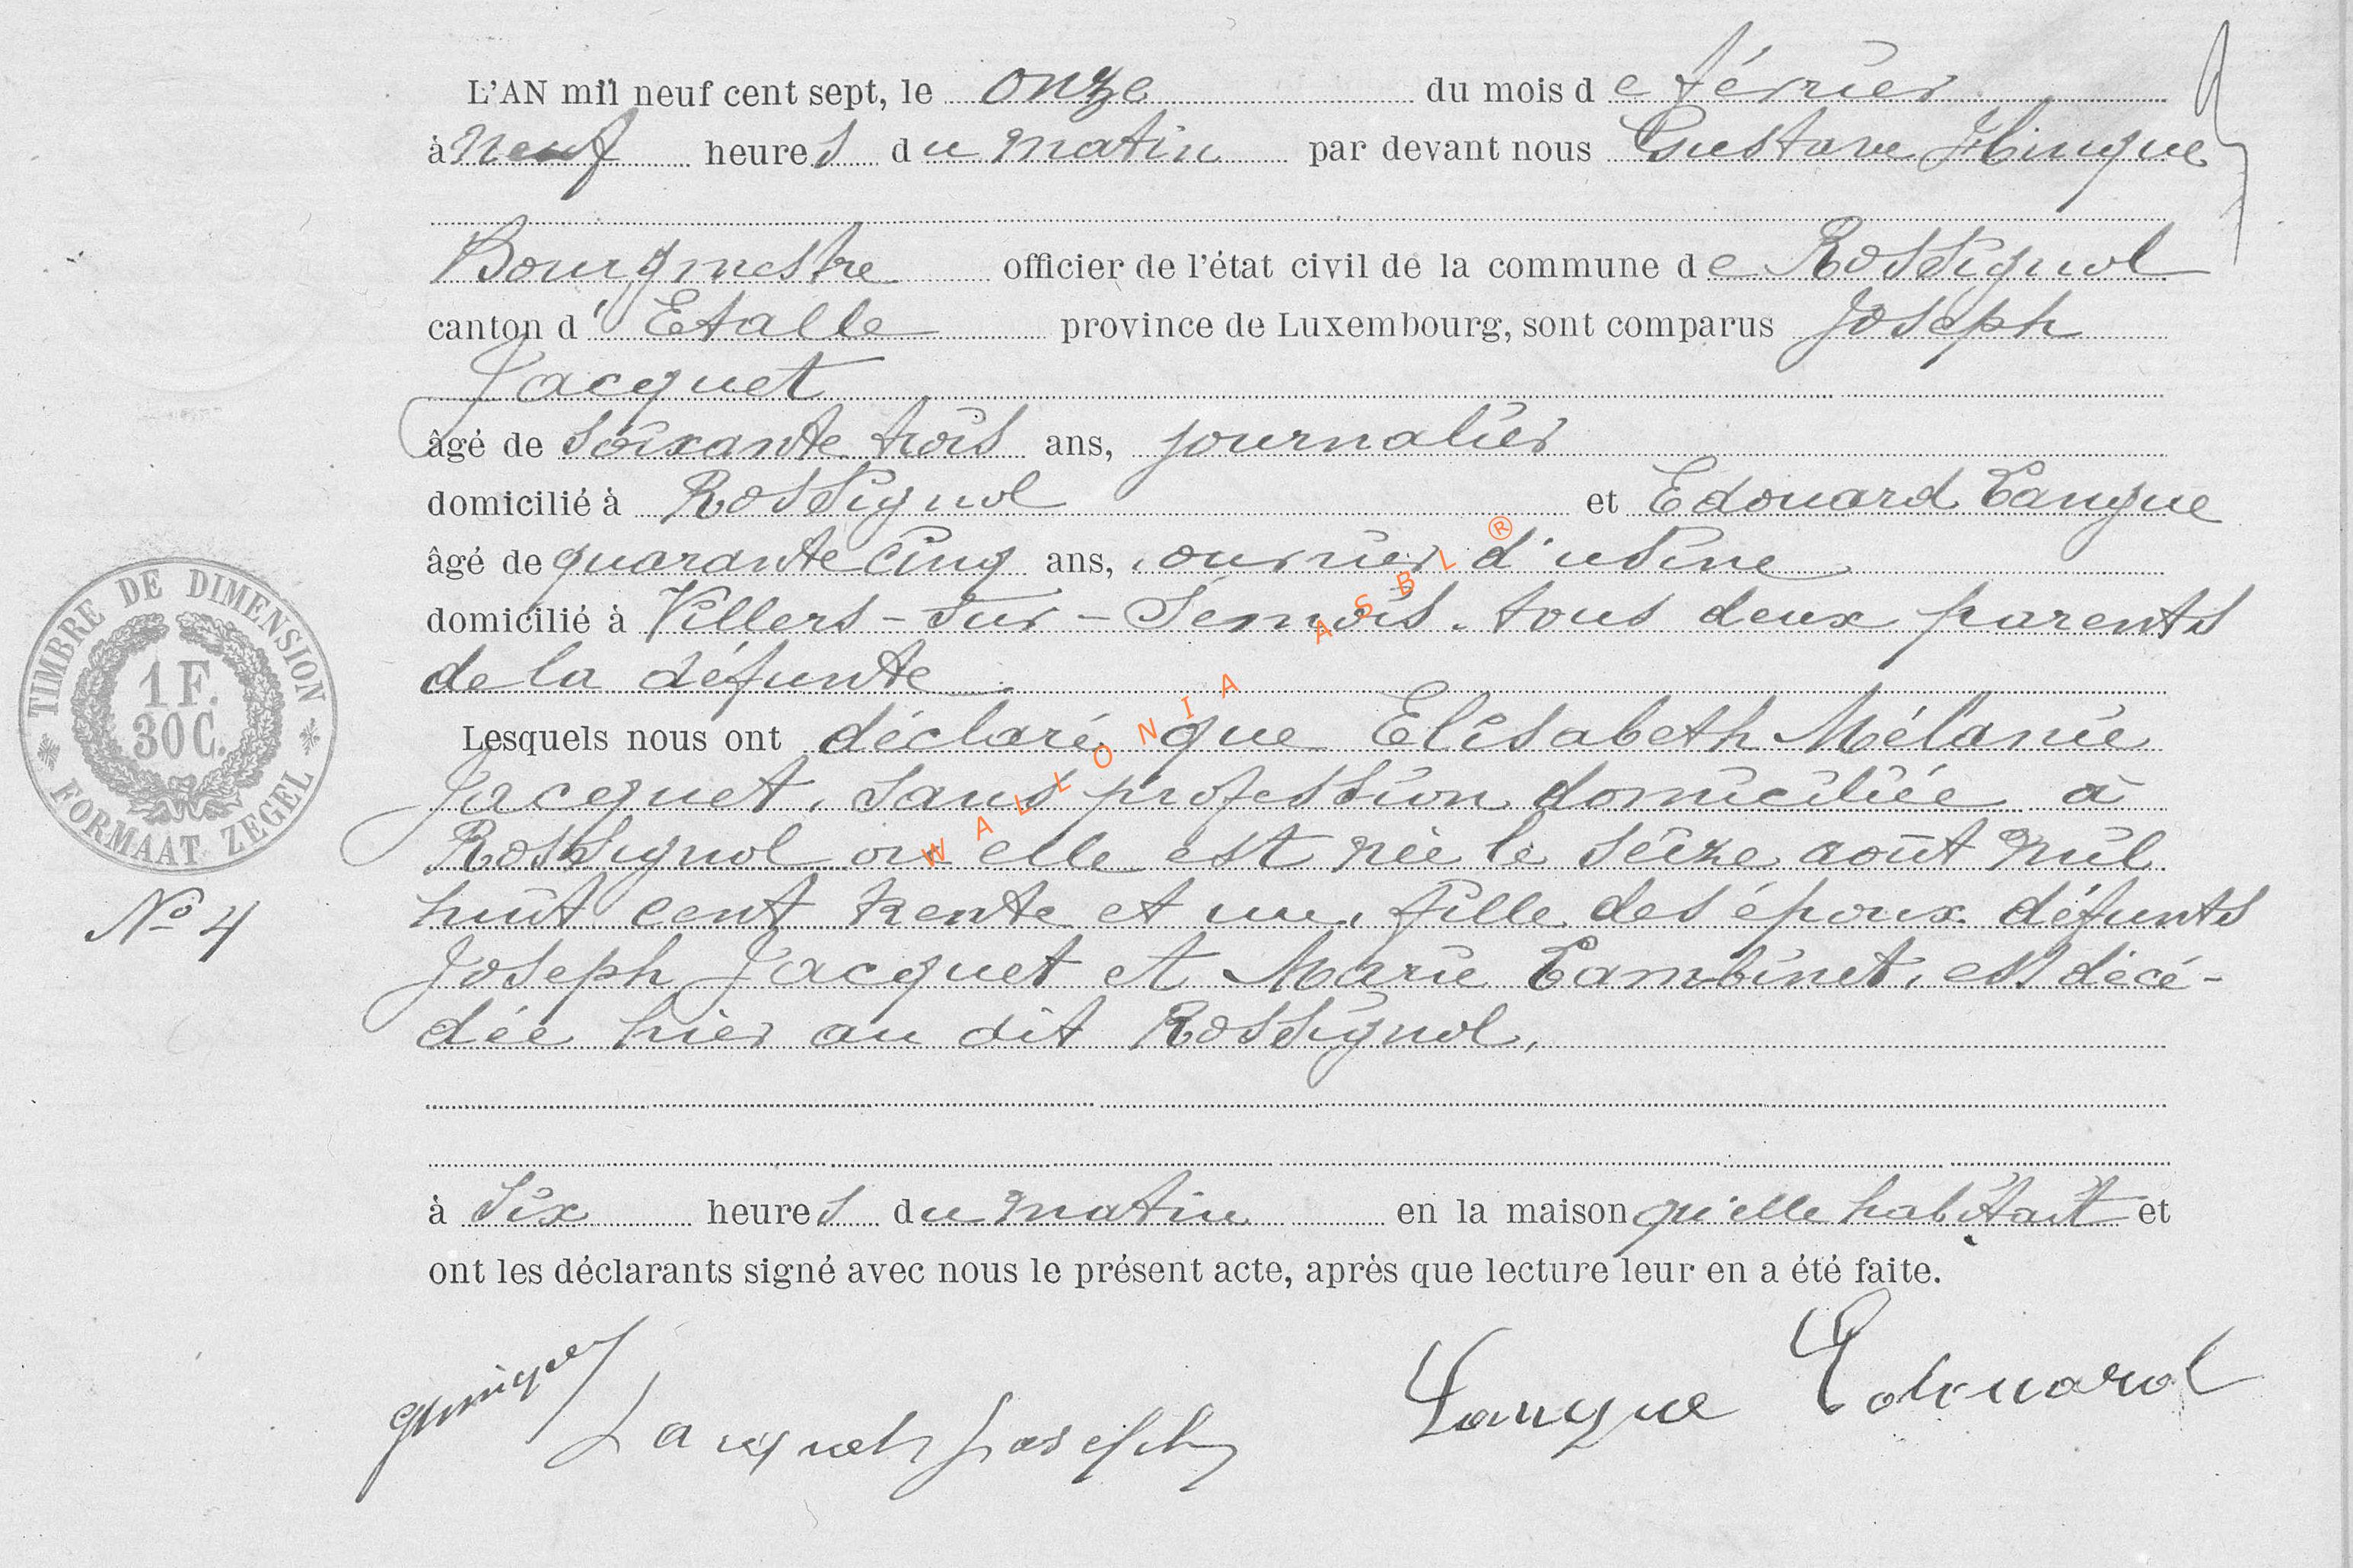 L'AN mil neuf cent sept, le onze du mois de février
à neuf heures du matin par devant nous Gustave Hinque
Bourgmestre officier de l'état civil de la commune de Rossignol
canton d'Etalle province de Luxembourg, sont comparus Joseph
Jacquet
âgé de soixante trois ans, journalier
domicilié à Rossignol et Edouard Tanque
âgé de quarante cinq ans, ouvrier d'usine
domicilié à Villers-sur-Semois, tous deux parents
de la défunte
Lesquels nous ont déclaré que Elisabeth Mélanie
Jacquet, sans profession domiciliée à
Rossignol où elle est née le seize août mil
huit cent trente et un, fille des époux défunts
Joseph Jacquet et Marie Lambinet, est décé-
dée hier au dit Rossignol,
à six heures du matin en la maison qu'elle habitait et
ont les déclarants signé avec nous le présent acte, après que lecture leur en a été faite.
GHinque Jacquet Joseph Tanque Edouard
TIMBRE DE DIMENSION
1 F.
30 C.
FORMAAT ZEGEL
No 4
WALLONIA ASBL ®